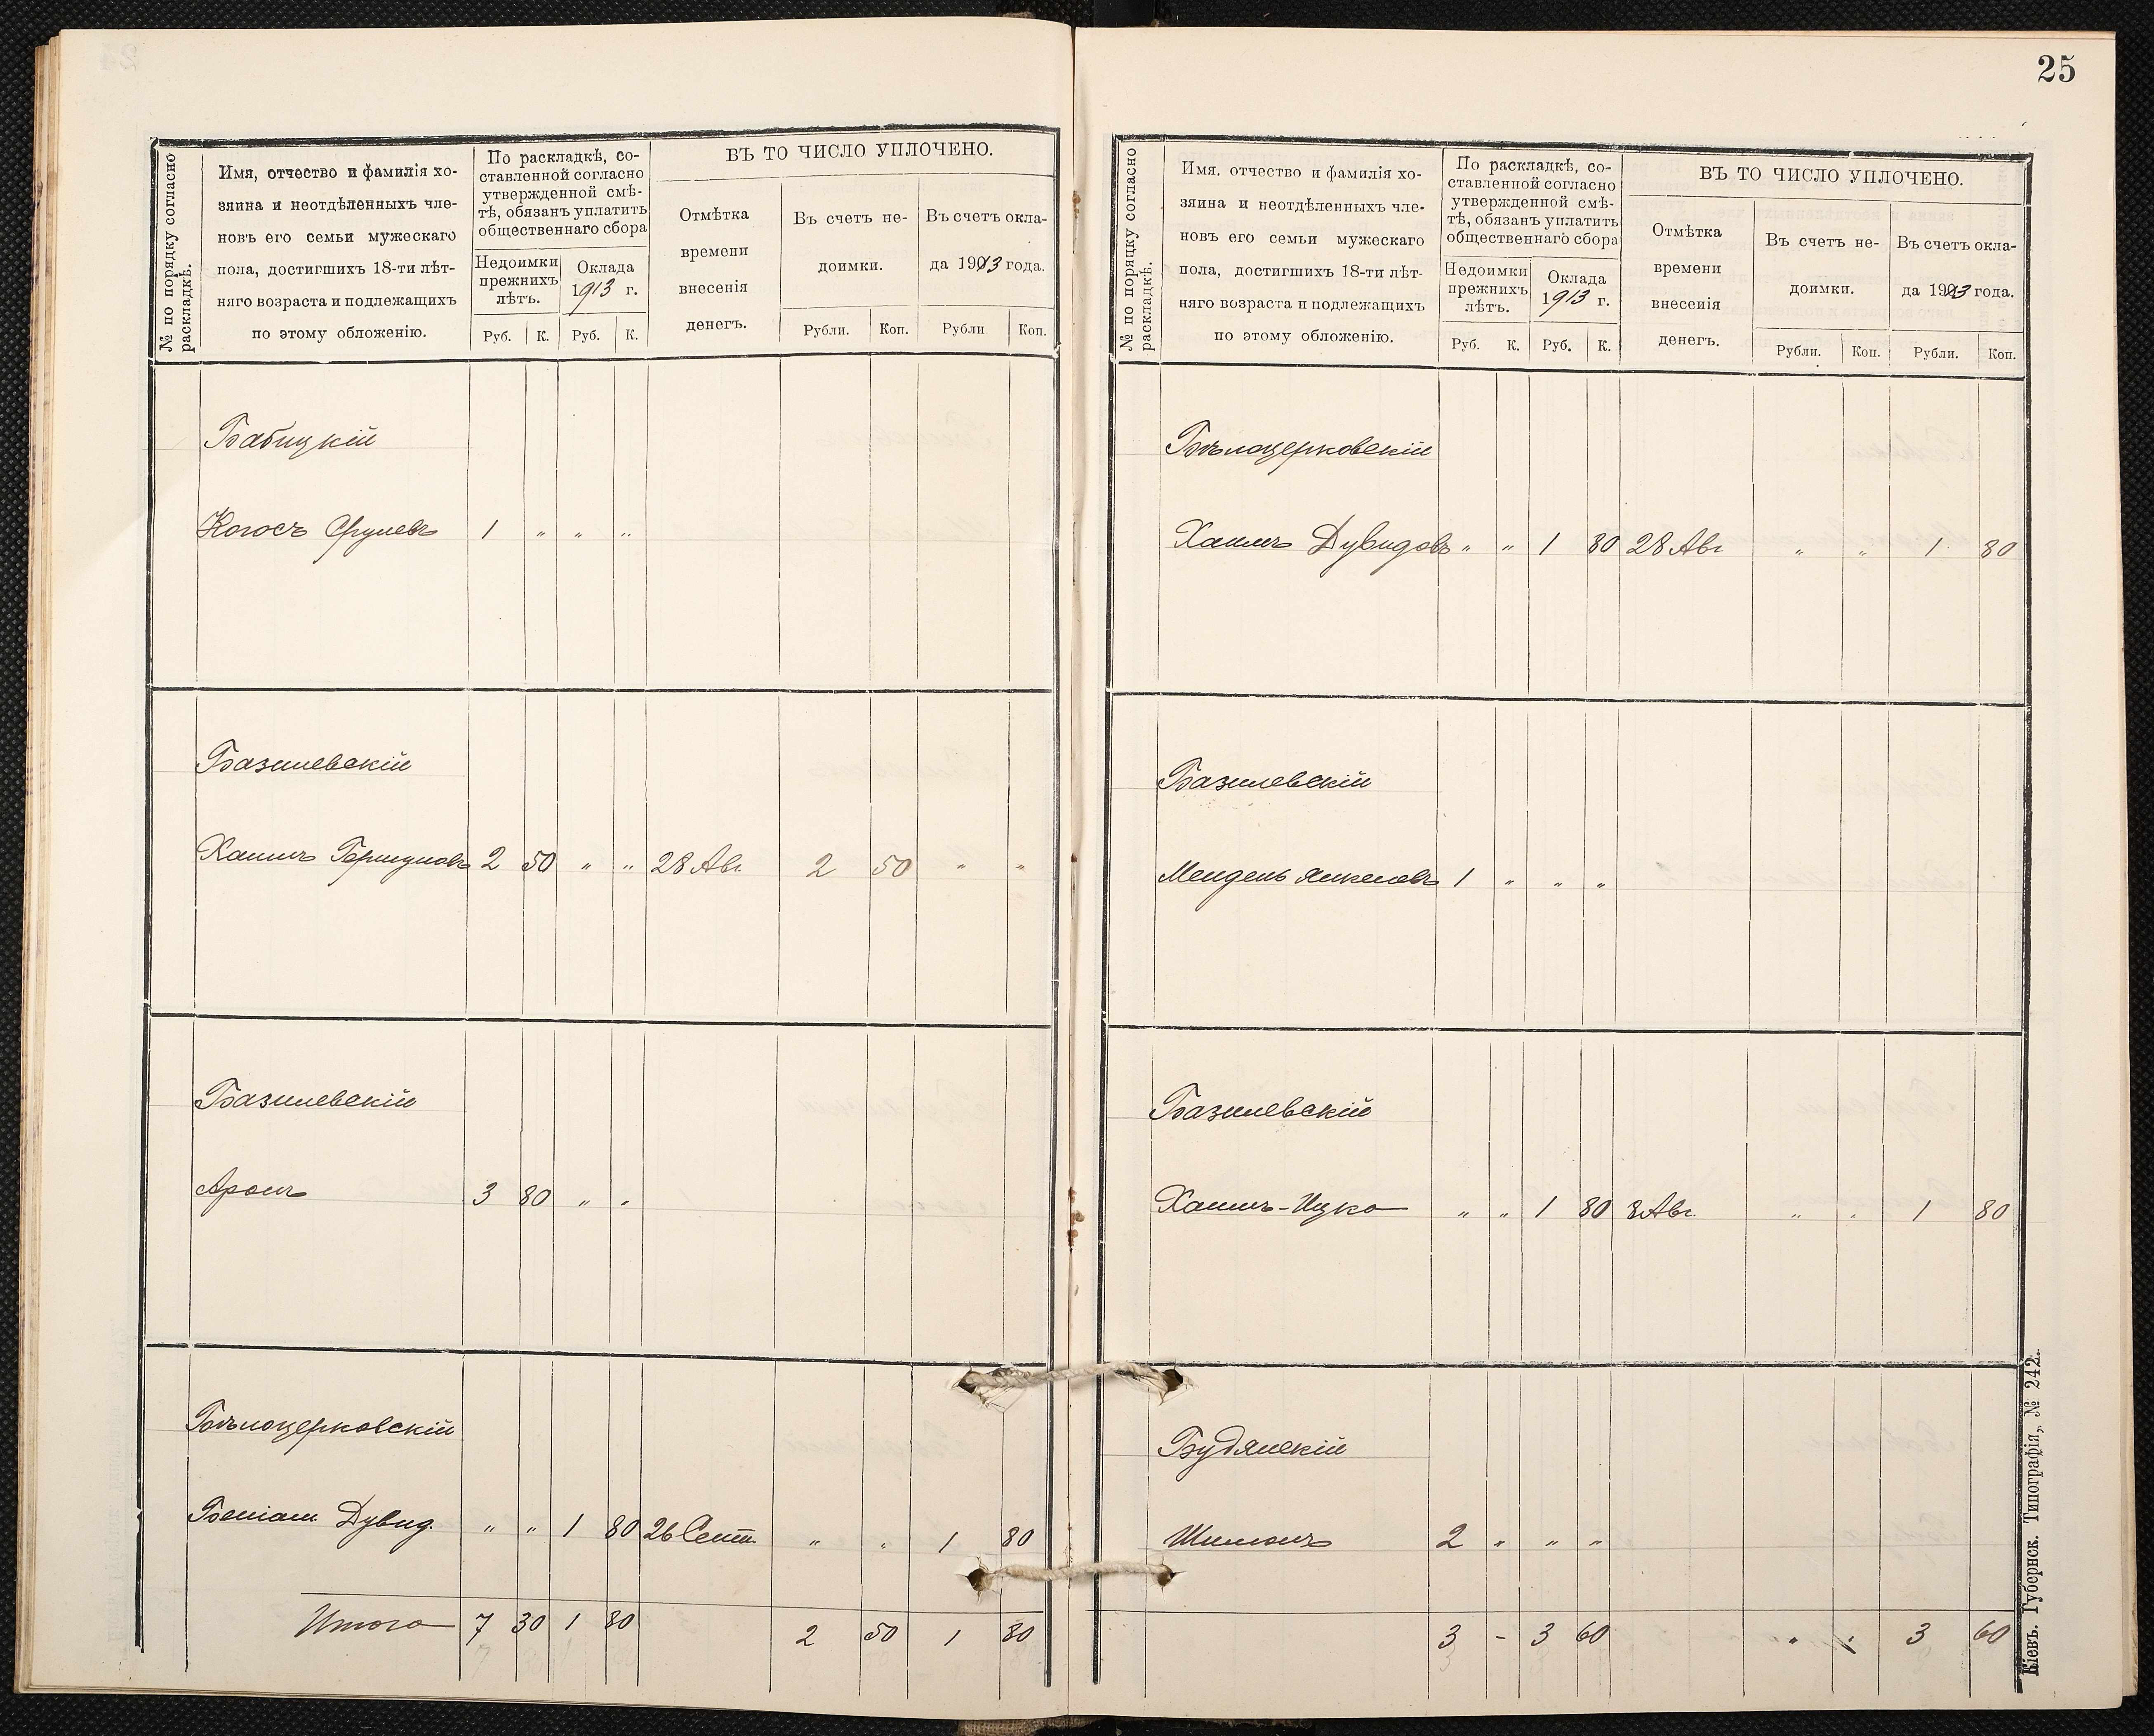 № по порядку согласно
раскладкѣ.
Имя, отчество и фамилія хо-
зяина и неотдѣленныхъ чле-
новъ его семьи мужескаго
пола, достигшихъ 18-ти лѣт-
няго возраста и подлежащихъ
по этому обложенію.
По раскладкѣ, со-
ставленной согласно
утвержденной смѣ-
тѣ, обязанъ уплатить
общественнаго сбора
Недоимки
прежнихъ
лѣтъ.
Оклада
1913 г.
Руб. К. Руб. К.
ВЪ ТО ЧИСЛО УПЛОЧЕНО.
Отмѣтка
времени
внесенія
денегъ.
Въ счетъ не-
доимки.
Въ счетъ окла-
да 1913 года.
Рубли. Коп. Рубли Коп.
Бабицкій
Когосъ Срулевъ 1 " " "
Базилевскій
Хаимъ Гершуновъ 2 50 " " 28 Авг. 2 50 " "
Базилевскій
Аронъ 3 80 " "
Бѣлоцерковскій
Беніам. Дувид. " " 1 80 26 Сент. " " 1 80
Итого 7 30 1 80 2 50 1 80
25
№ по порядку согласно
раскладкѣ.
Имя, отчество и фамилія хо-
зяина и неотдѣленныхъ чле-
новъ его семьи мужескаго
пола, достигшихъ 18-ти лѣт-
няго возраста и подлежащихъ
по этому обложенію.
По раскладкѣ, со-
ставленной согласно
утвержденной смѣ-
тѣ, обязанъ уплатить
общественнаго сбора
Недоимки
прежнихъ
лѣтъ.
Оклада
1913 г.
Руб. К. Руб. К.
ВЪ ТО ЧИСЛО УПЛОЧЕНО.
Отмѣтка
времени
внесенія
денегъ.
Въ счетъ не-
доимки.
Въ счетъ окла-
да 1913 года.
Рубли. Коп. Рубли. Коп.
Бѣлоцерковскій
Хаимъ Дувидовъ " " 1 80 28 Авг " " 1 80
Базилевскій
Мендель Янкелевъ 1 " " "
Базилевскій
Хаимъ-Ицко " " 1 80 8 Авг. " " 1 80
Будянскій
Шимонъ 2 " " "
3 - 3 60 " " 3 60
Кіевъ. Губернск. Типографія, № 242.